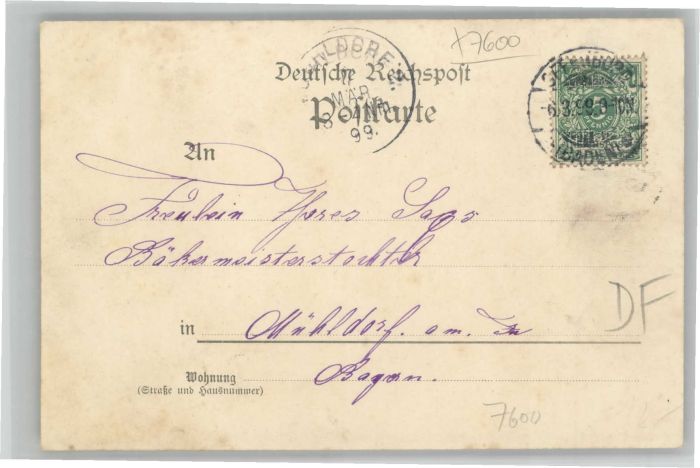 x7600
Deutsche Reichspost
Postkarte
MÄR
99.
6.3.99.9-10V.
(BADEN)
An
Freulein Theres
Bäkermeisterstochter
in Mühldorf. am. In
Wohnung Bayern.
(Straße und Hausnummer)
DF
7600